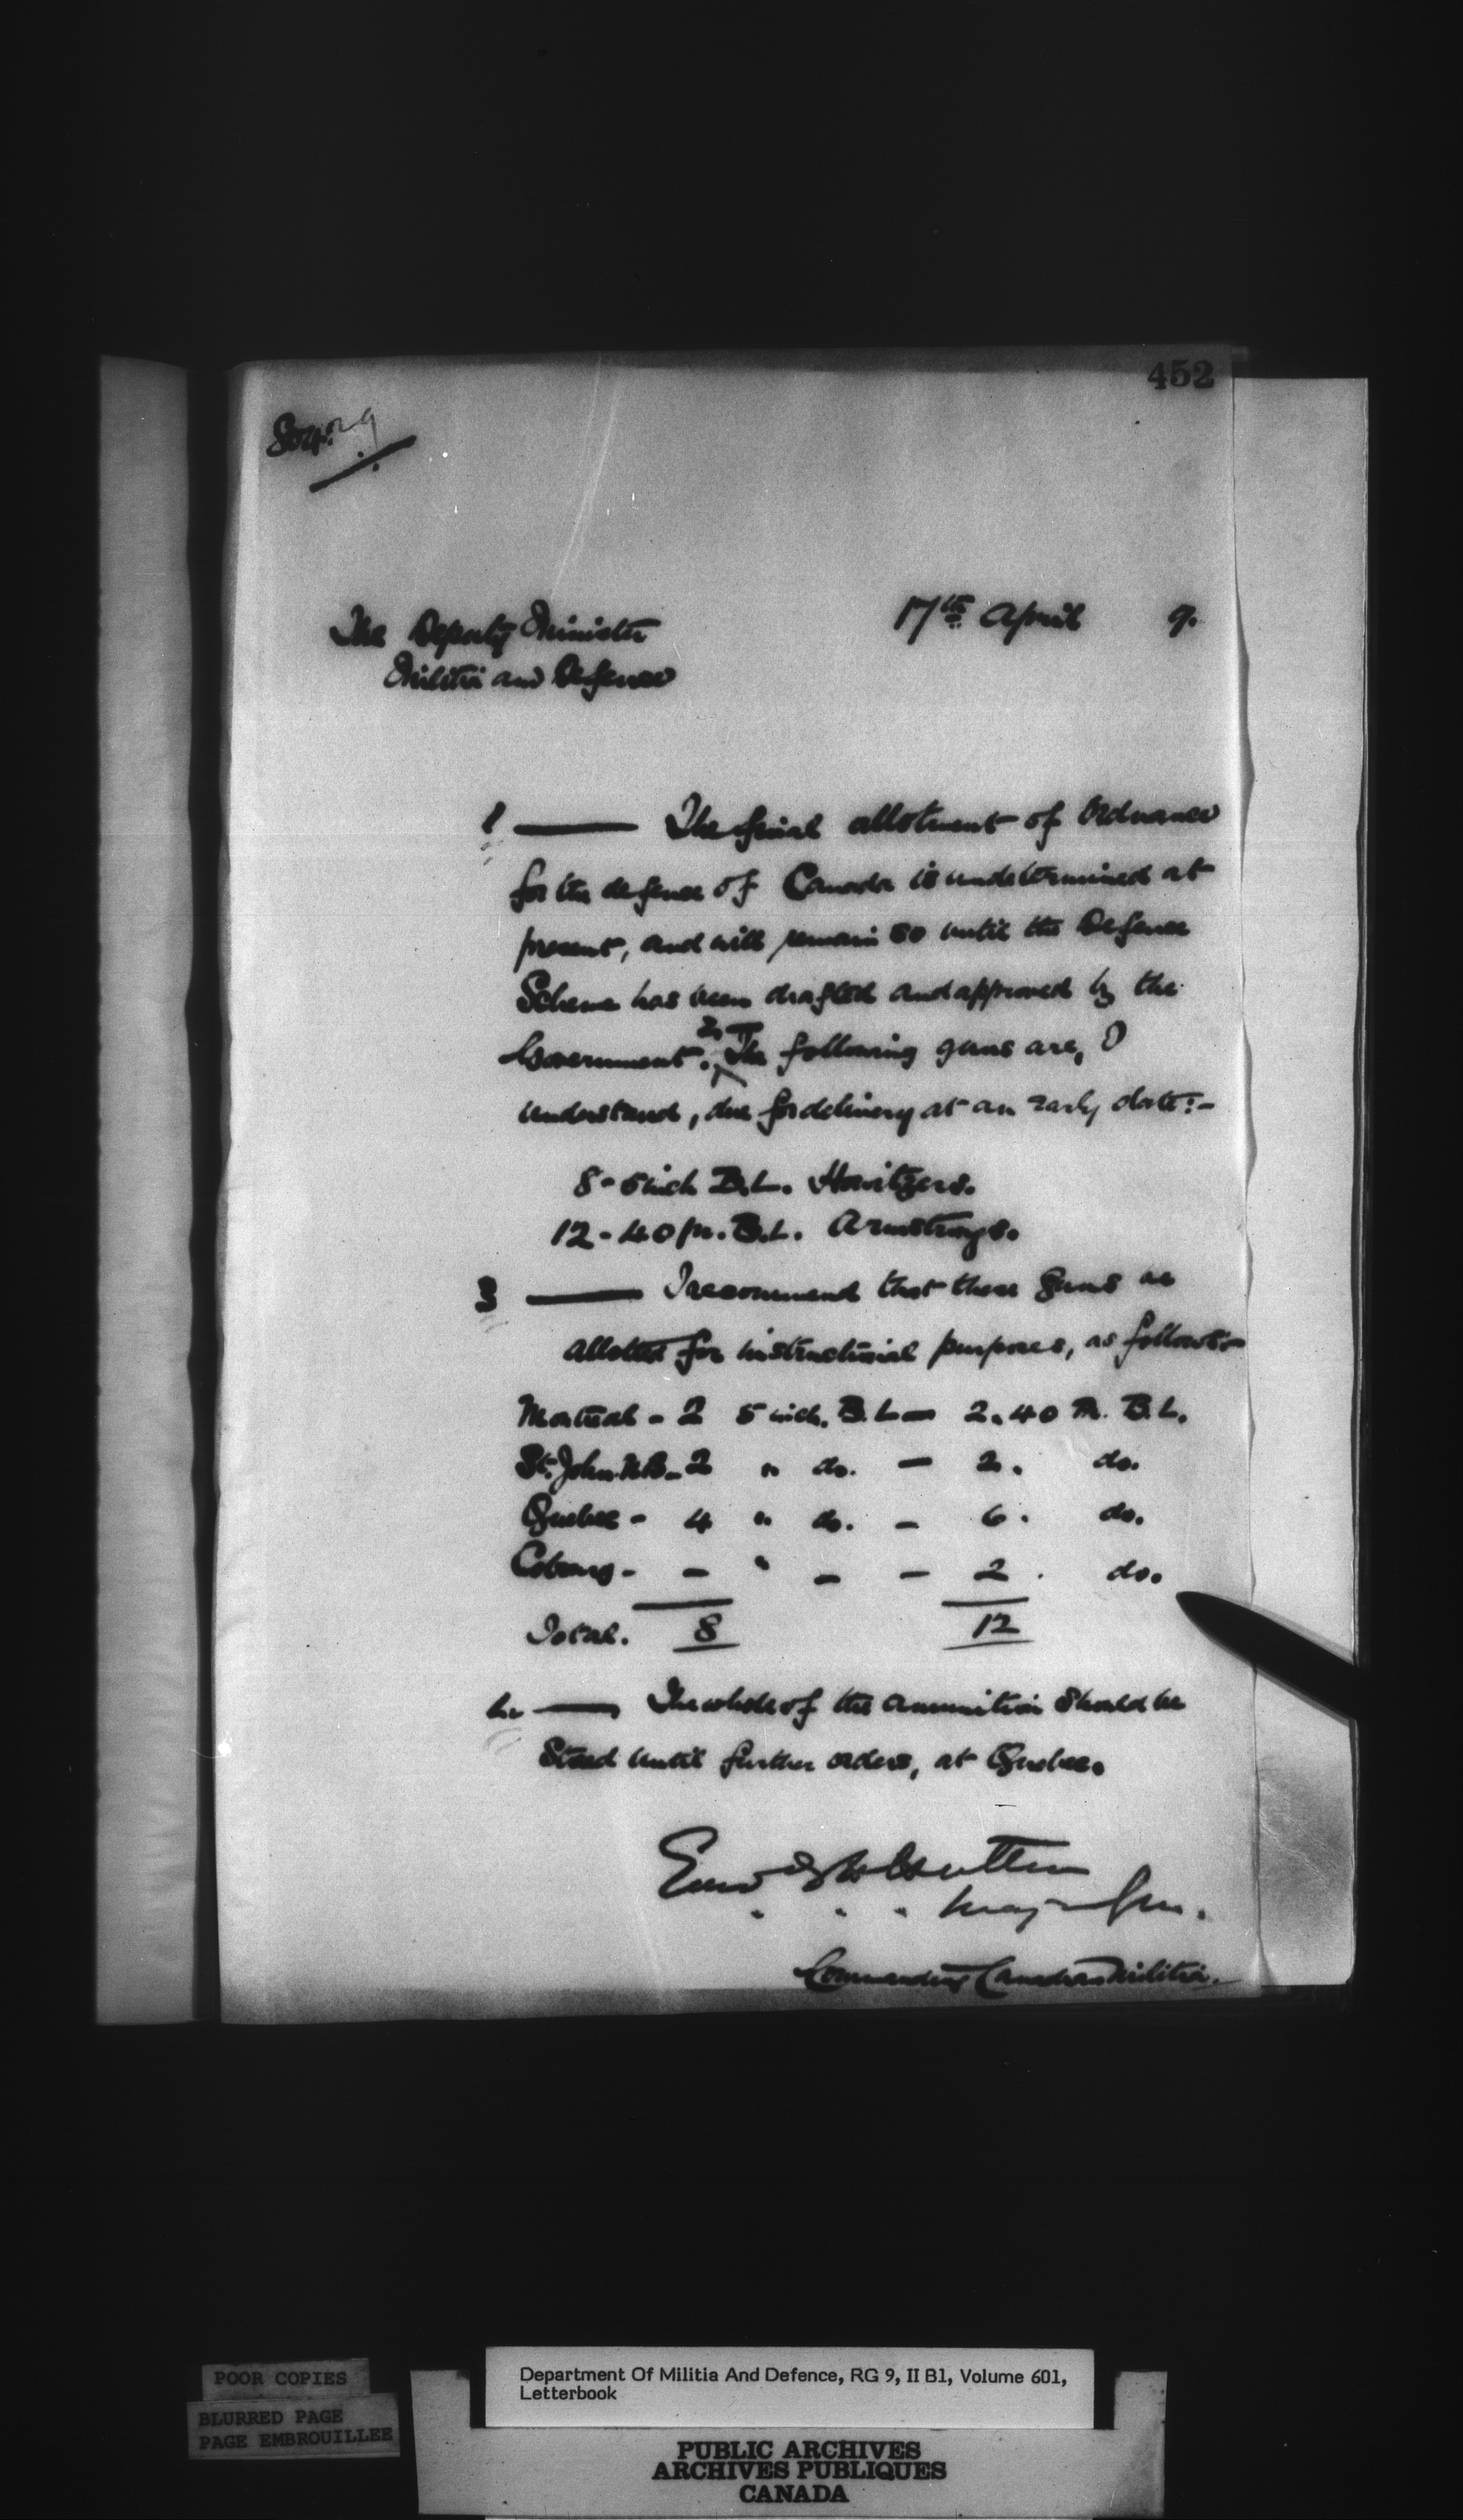 452
The Deputy Minister
Militia and Defence
17th April 9.
1 — The final allotment of Ordnance
for the defence of Canada is undetermined at
present, and will remain so until the Defence
Scheme has been drafted and approved by the
Government. 2 — The following guns are, I
understand, due for delivery at an early date:-
8 - 5 inch B.L. Howitzers.
12 - 40 pr. B.L. Armstrongs.
3 — I recommend that these guns be
allotted for instructional purposes, as follows:-
Montreal - 2 5 inch. B.L. - 2. 40 Pr. B.L.
St. John N.B. - 2 " do. - 2. do.
Quebec - 4 " do. - 6. do.
Cobourg - - " - - 2. do.
Total. 8 12
4 — The whole of the ammunition should be
stored until further orders, at Quebec.
Hutton
Major Gen.
Commanding Canadian Militia.
POOR COPIES
BLURRED PAGE
PAGE EMBROUILLEE
Department Of Militia And Defence, RG 9, II B1, Volume 601,
Letterbook
PUBLIC ARCHIVES
ARCHIVES PUBLIQUES
CANADA